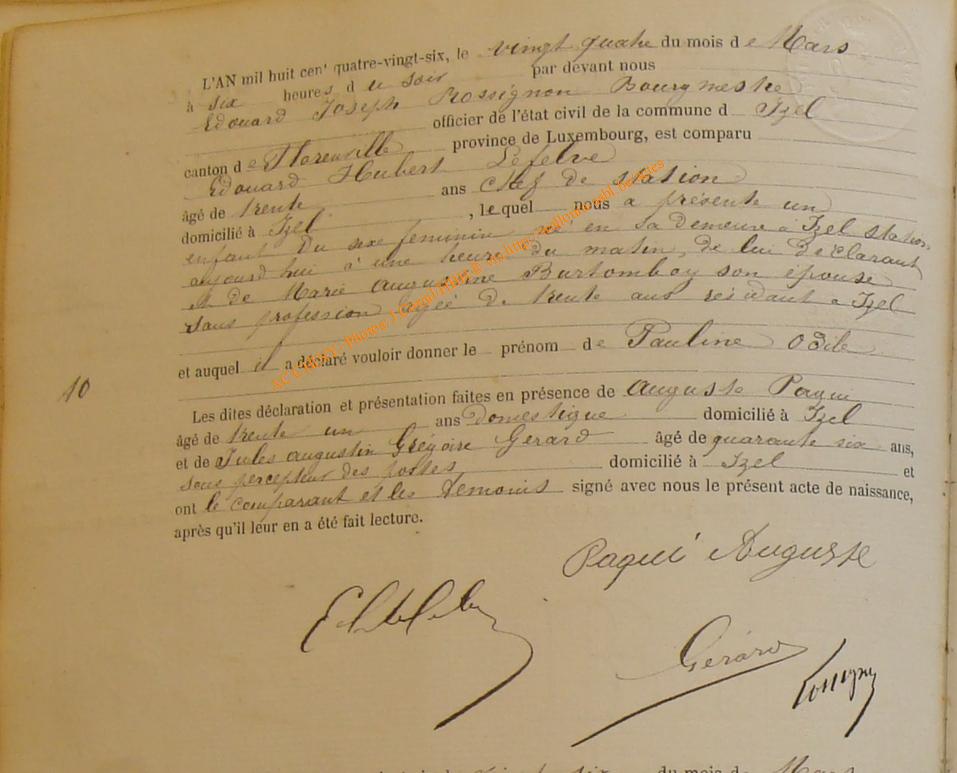 L'AN mil huit cent quatre-vingt-six, le vingt quatre du mois de Mars
à six heures d u soir par devant nous
Edouard Joseph Rossignon Bourgmestre
officier de l'état civil de la commune d Izel
canton de Florenville province de Luxembourg, est comparu
Edouard Hubert Lefelve
âgé de trente ans chef de station
domicilié à Izel, lequel nous a présenté un
enfant du sexe féminin né en sa demeure à Izel station
aujourd'hui à une heure du matin, de lui déclarant
et de Marie Augustine Burtomboy son épouse
sans profession agée de trente ans résidant à Izel
et auquel il a déclaré vouloir donner le prénom de Pauline Odile
10
Les dites déclaration et présentation faites en présence de Auguste Paqui
âgé de trente un ans Domestique domicilié à Izel
et de Jules Augustin Grégoire Gerard âgé de quarante six ans,
sous percepteur des postes domicilié à Izel et
ont le comparant et les témoins signé avec nous le présent acte de naissance,
après qu'il leur en a été fait lecture.
Paqui Auguste
Gérard